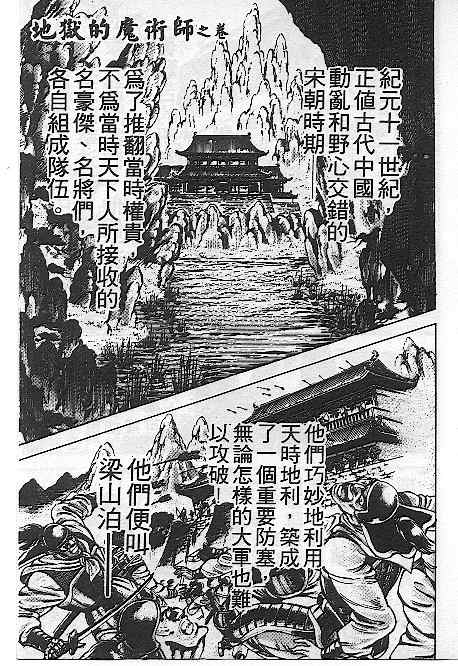 地獄的魔術師之卷
紀元十一世紀，
正值古代中國
動亂和野心交錯的
宋朝時期，
為了推翻當時權貴，
不為當時天下人所接收的
名豪傑、名將們，
各自組成隊伍。
他們巧妙地利用
天時地利，築成
了一個重要防塞，
無論怎樣的大軍也難
以攻破—
他們便叫
梁山泊——